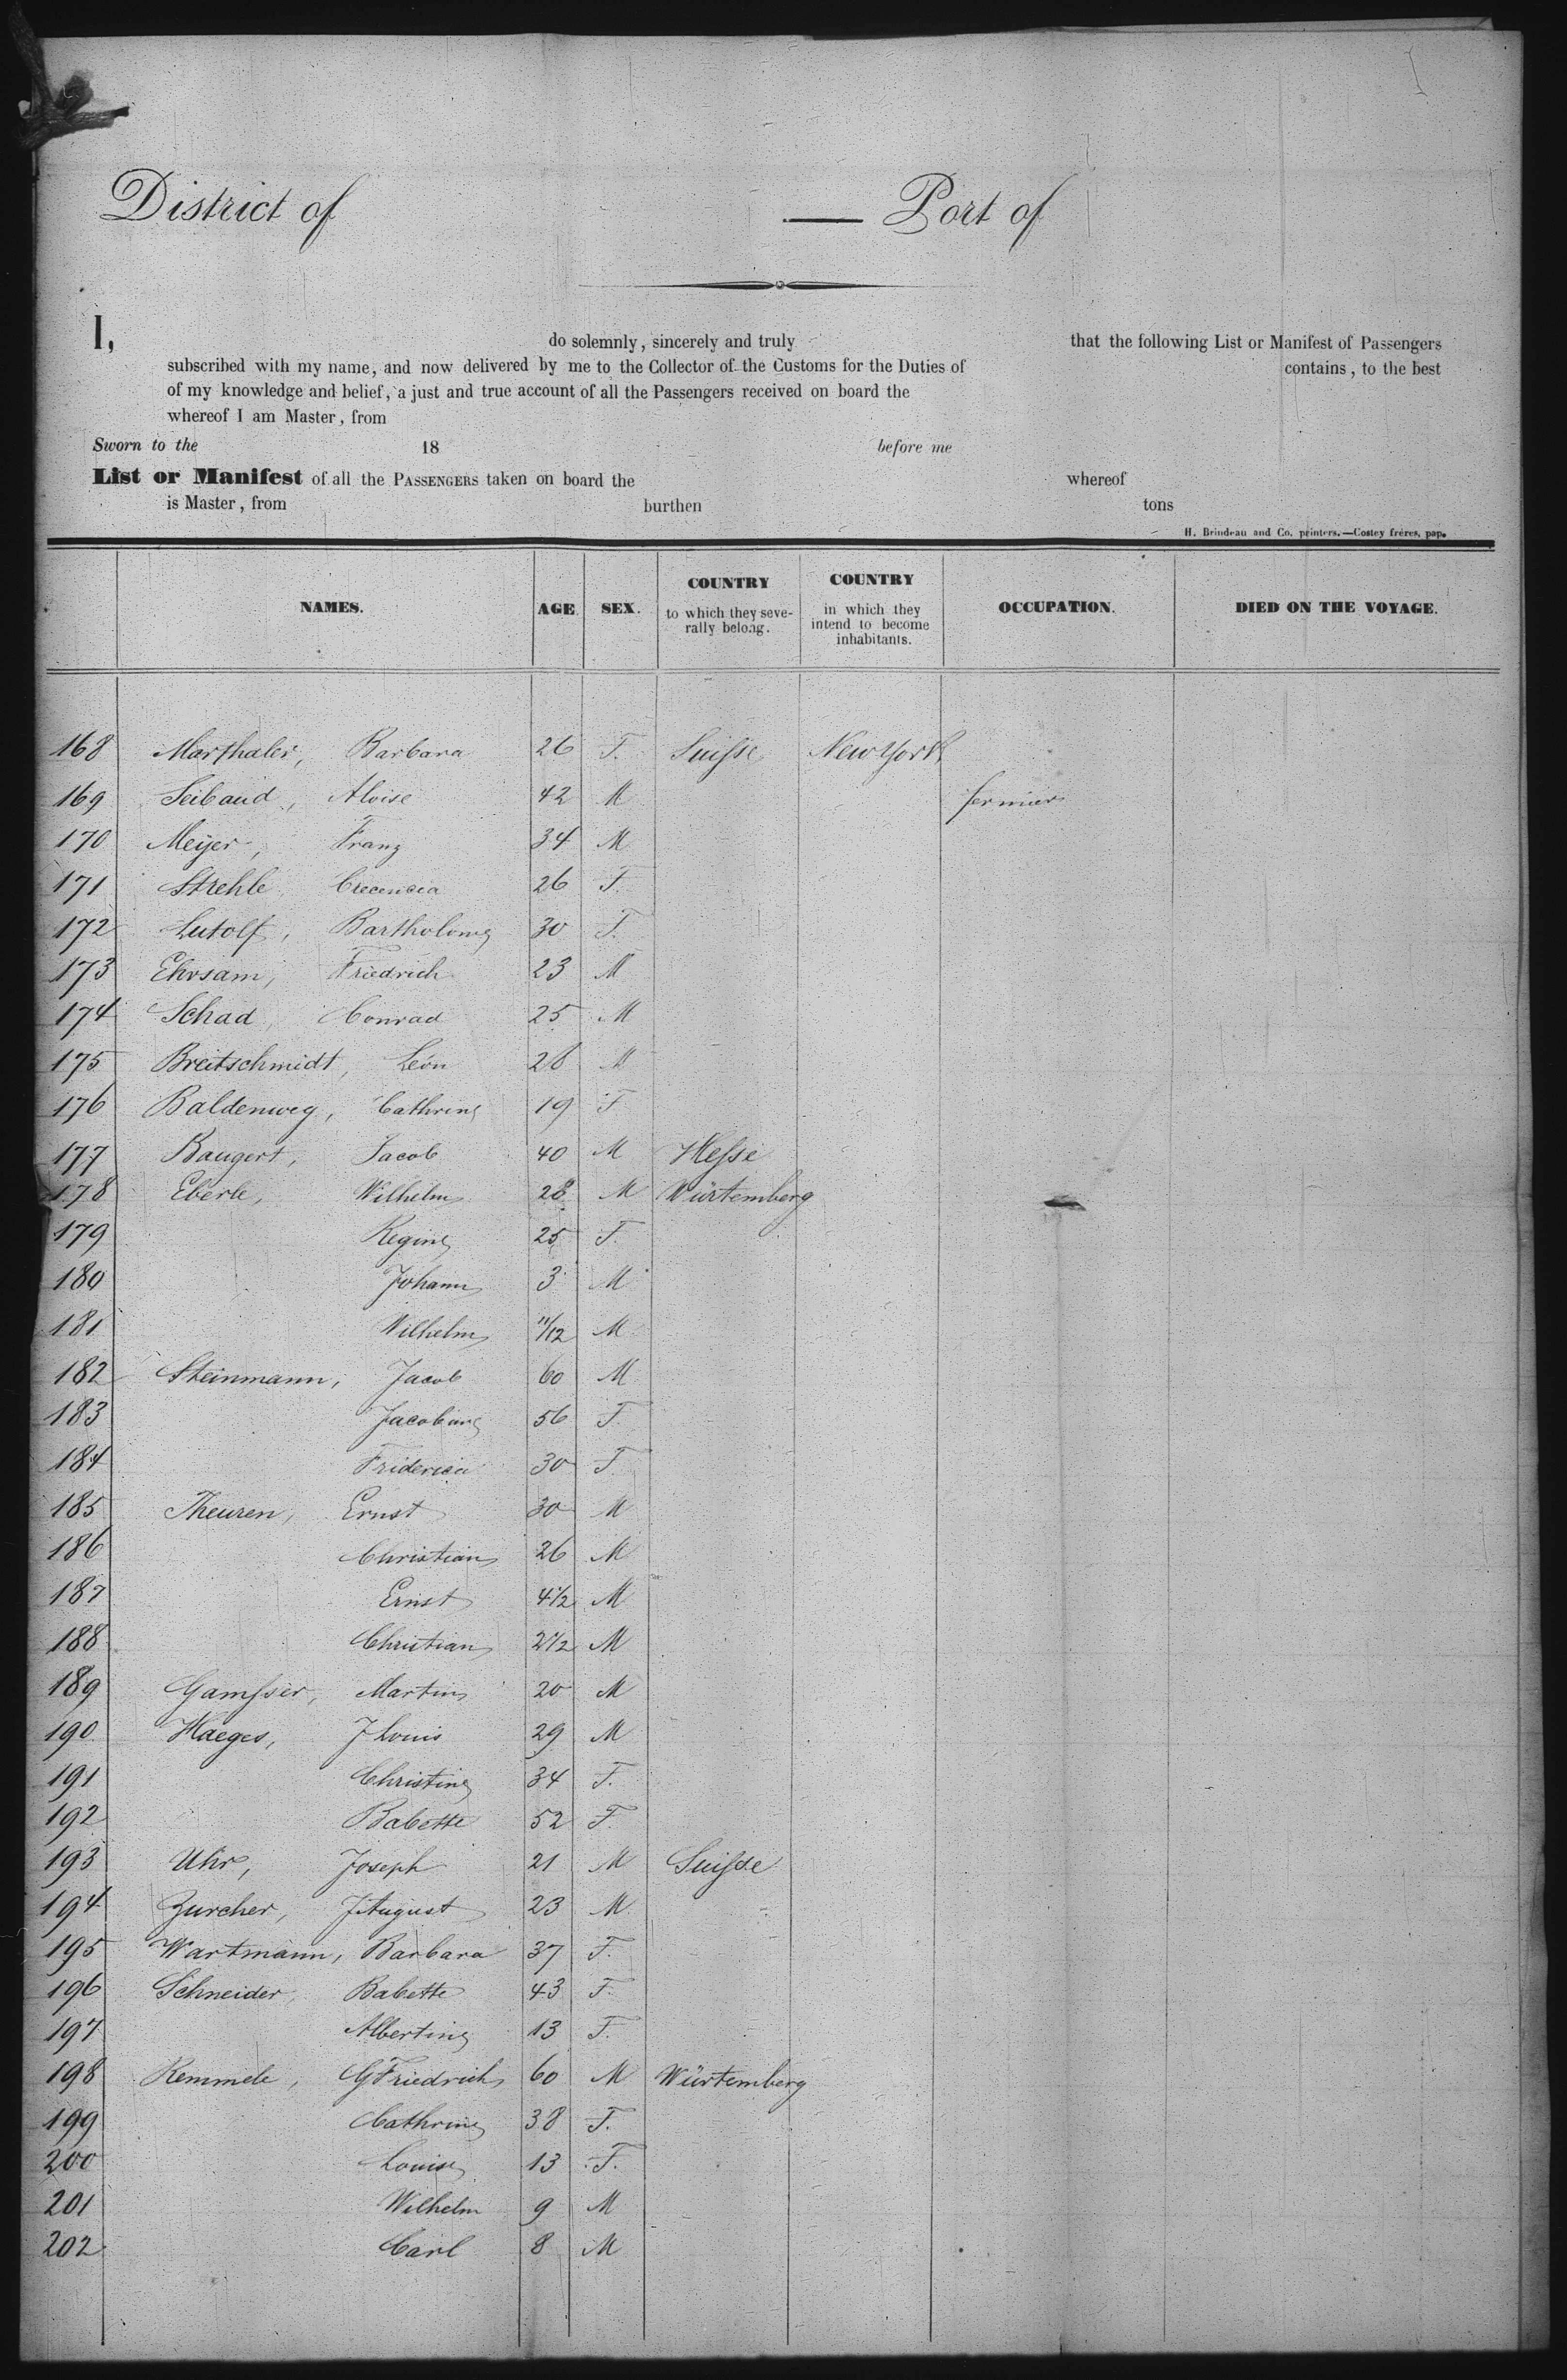 District of — Port of
I, do solemnly, sincerely and truly that the following List or Manifest of Passengers
subscribed with my name, and now delivered by me to the Collector of the Customs for the Duties of contains, to the best
of my knowledge and belief, a just and true account of all the Passengers received on board the
whereof I am Master, from
Sworn to the 18 before me
List or Manifest of all the PASSENGERS taken on board the whereof
is Master, from burthen tons
H. Brindeau and Co. printers.—Costey frères, pap.
NAMES. AGE. SEX. COUNTRY to which they seve- COUNTRY in which they OCCUPATION. DIED ON THE VOYAGE.
rally belong. intend to become
inhabitants.
168 Marthaler, Barbara 26 F. Suisse New York
169 Seibaud, Aloise 42 M fermier
170 Meijer, Franz 34 M
171 Strehle, Crecencia 26 F.
172 Lutolf, 30 F.
173 Ehrsam, Friedrich 23 M
174 Schad, Conrad 25 M
175 Breitschmidt, Léon 28 M
176 Baldenweg, Cathrine 19 F
177 Baugert, Jacob 40 M Hesse
178 Eberle, Wilhelm 28 M Würtemberg
179 Regine 25 F.
180 Johann 3 M
181 Wilhelm 11/12 M
182 Steinmann, Jacob 60 M
183 Jacobine 56 F.
184 Friderica 30 F.
185 Theuren, Ernst 30 M
186 Christian 26 M
187 Ernst 4 1/2 M
188 Christian 2 1/2 M
189 Martin 20 M
190 Haeges, J Louis 29 M
191 Christine 34 F.
192 Babette 52 F.
193 Uhr, Joseph 21 M Suisse
194 Zurcher, J August 23 M.
195 Wartmann, Barbara 37 F.
196 Schneider, Babette 43 F.
197 Albertine 13 F.
198 Remmele, G Friedrich 60 M Würtemberg
199 Cathrine 38 F.
200 Louise 13 F.
201 Wilhelm 9 M
202 Carl 8 M